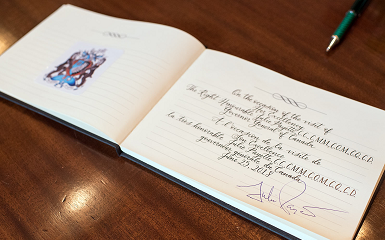 On the occasion of the visit of
The Right Honourable Julie Payette C.C., C.M.M., C.O.M., C.Q., C.D.
Governor General of Canada
À l'occasion de la visite de
la très honorable Julie Payette C.C., C.M.M., C.O.M., C.Q., C.D.
gouverneure générale du Canada
June 25, 2018